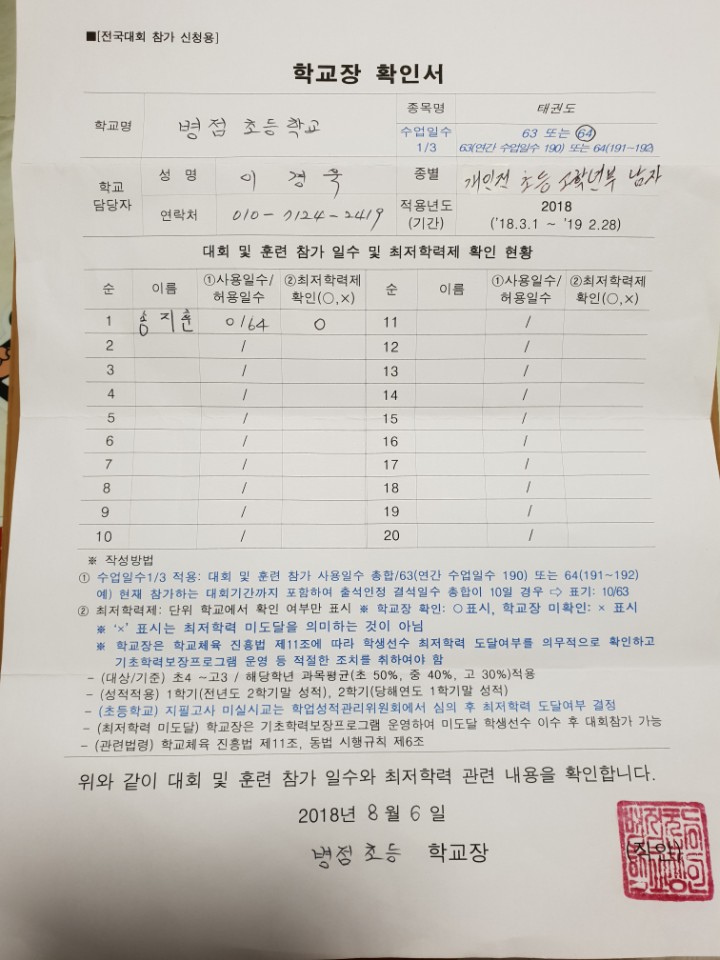 ■[전국대회 참가 신청용]
학교장 확인서
학교명 병점 초등학교 종목명 태권도
수업일수 1/3 63 또는 64
63(연간 수업일수 190) 또는 64(191~192)
학교 담당자 성 명 이 경욱 종별 개인전 초등 고학년부 남자
연락처 010-7124-2419 적용년도 (기간) 2018 ('18.3.1 ~ '19 2.28)
대회 및 훈련 참가 일수 및 최저학력제 확인 현황
순 이름 ①사용일수/허용일수 ②최저학력제 확인(○,×) 순 이름 ①사용일수/허용일수 ②최저학력제 확인(○,×)
1 송지훈 0/64 ○ 11 /
2 / 12 /
3 / 13 /
4 / 14 /
5 / 15 /
6 / 16 /
7 / 17 /
8 / 18 /
9 / 19 /
10 / 20 /
※ 작성방법
① 수업일수1/3 적용: 대회 및 훈련 참가 사용일수 총합/63(연간 수업일수 190) 또는 64(191~192)
예) 현재 참가하는 대회기간까지 포함하여 출석인정 결석일수 총합이 10일 경우 ⇨ 표기: 10/63
② 최저학력제: 단위 학교에서 확인 여부만 표시 ※ 학교장 확인: ○표시, 학교장 미확인: × 표시
※ ‘×’ 표시는 최저학력 미도달을 의미하는 것이 아님
※ 학교장은 학교체육 진흥법 제11조에 따라 학생선수 최저학력 도달여부를 의무적으로 확인하고
기초학력보장프로그램 운영 등 적절한 조치를 취하여야 함
- (대상/기준) 초4 ~고3 / 해당학년 과목평균(초 50%, 중 40%, 고 30%)적용
- (성적적용) 1학기(전년도 2학기말 성적), 2학기(당해연도 1학기말 성적)
- (초등학교) 지필고사 미실시교는 학업성적관리위원회에서 심의 후 최저학력 도달여부 결정
- (최저학력 미도달) 학교장은 기초학력보장프로그램 운영하여 미도달 학생선수 이수 후 대회참가 가능
- (관련법령) 학교체육 진흥법 제11조, 동법 시행규칙 제6조
위와 같이 대회 및 훈련 참가 일수와 최저학력 관련 내용을 확인합니다.
2018년 8월 6일
병점초등 학교장 (직인)